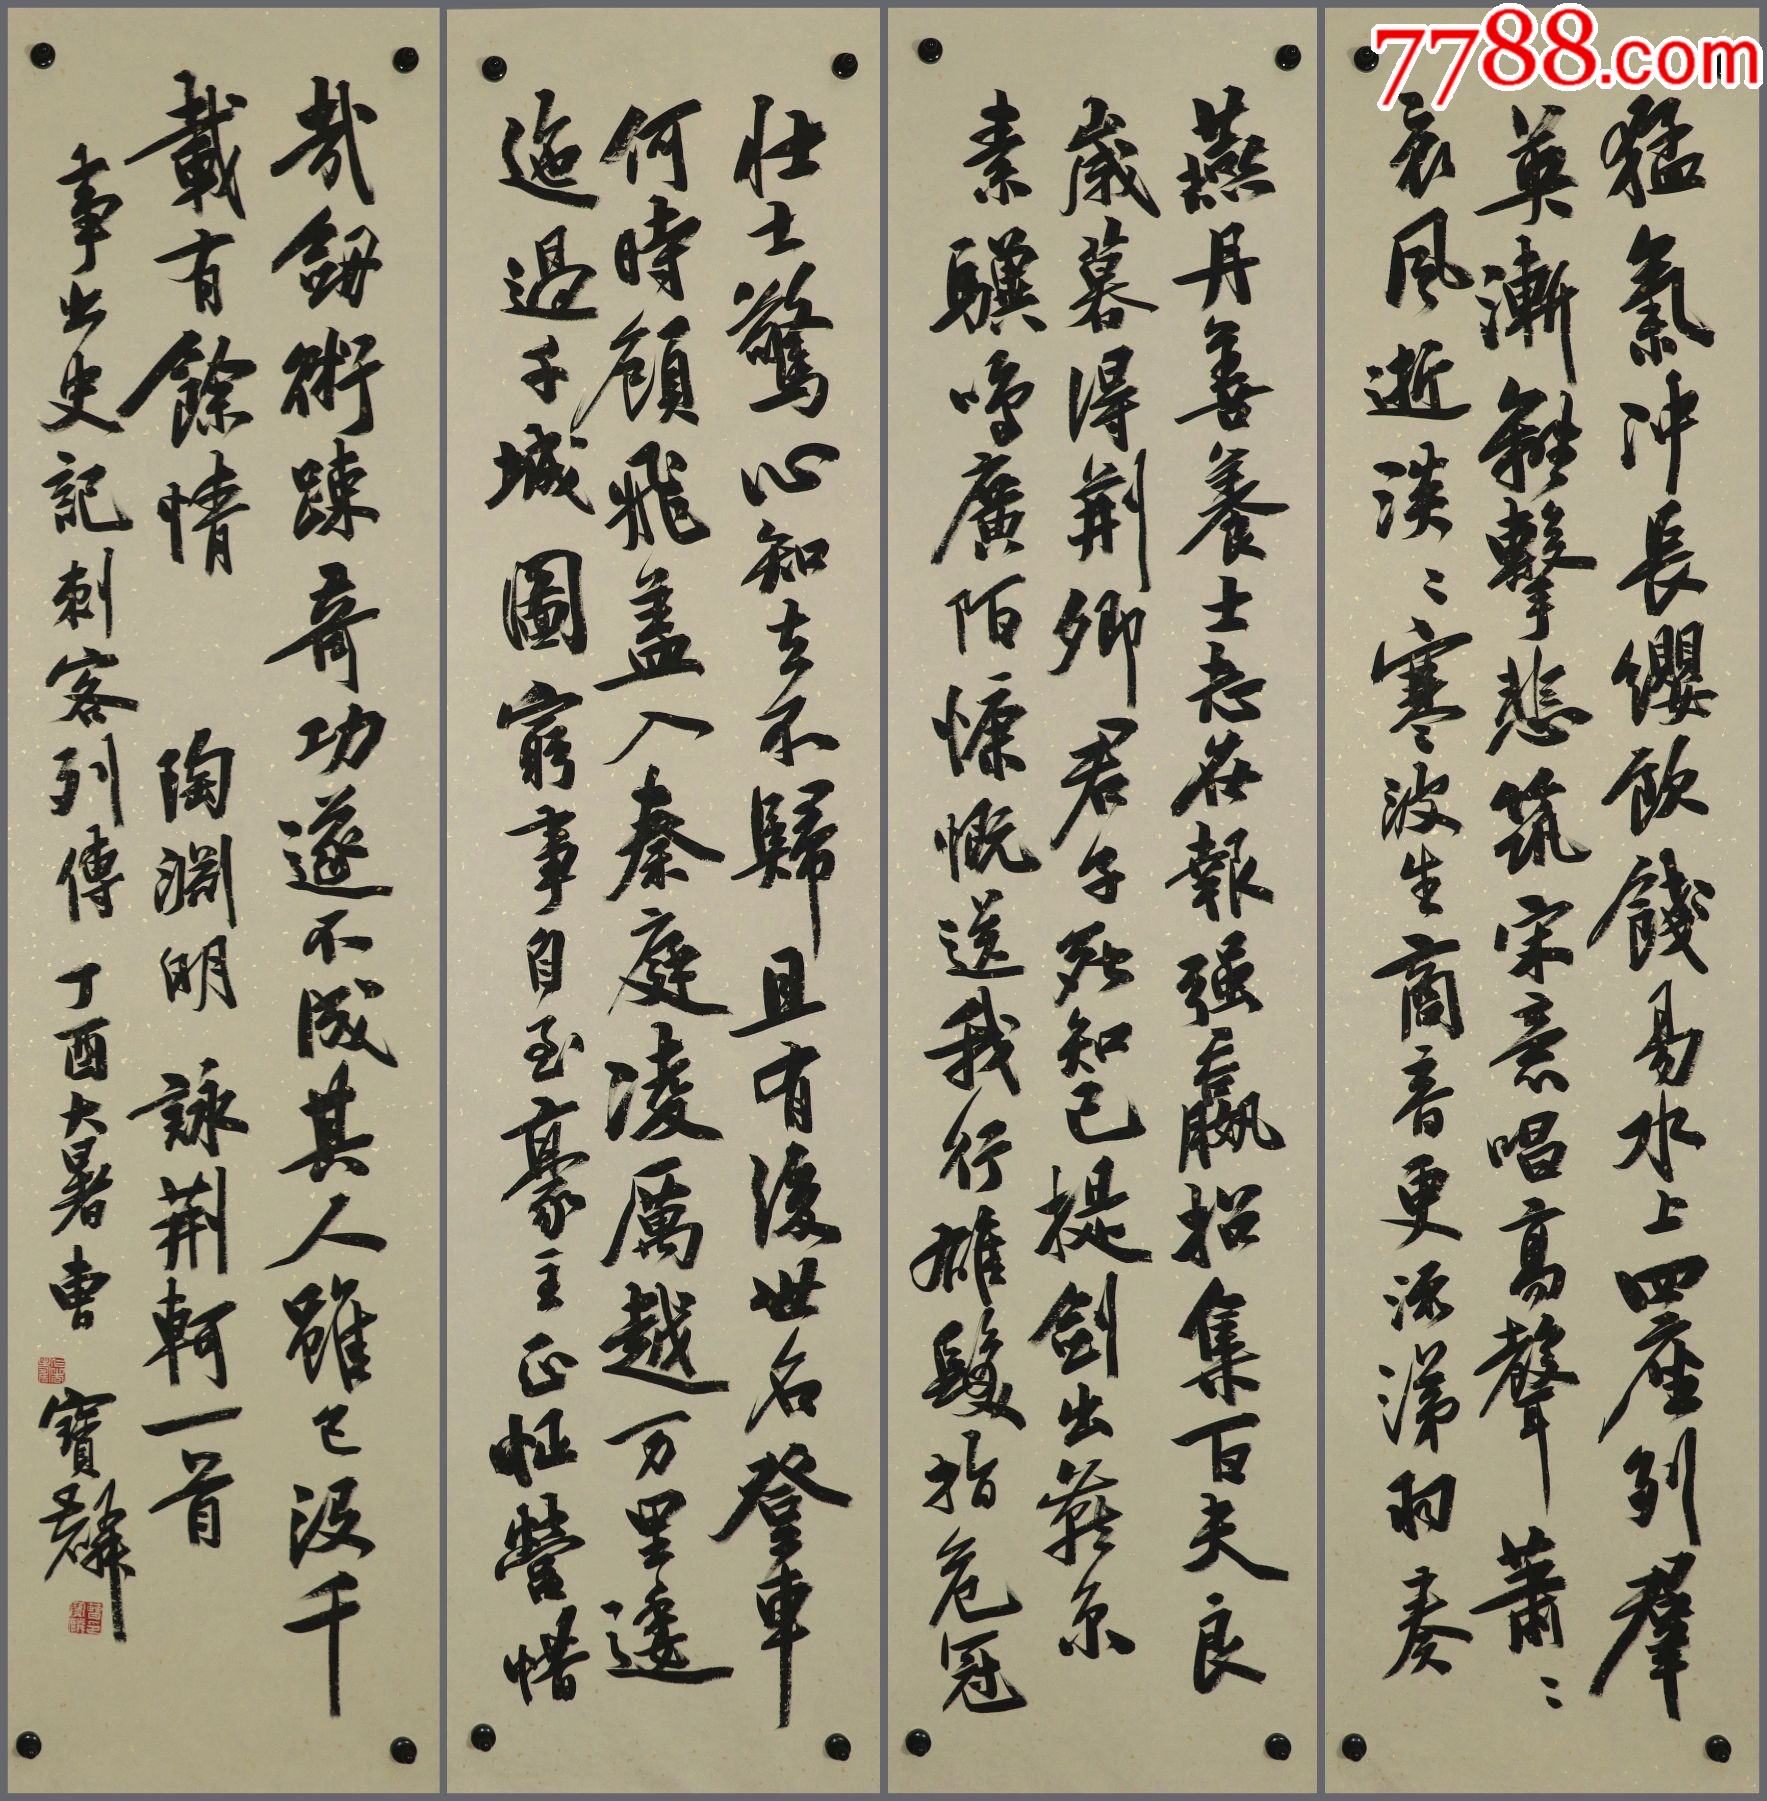 7788.com
猛氣沖長纓飲餞易水上四座列羣
英漸離擊悲筑宋意唱高聲蕭〻
哀風逝淡〻寒波生商音更流涕羽奏
燕丹善養士志在報强嬴招集百夫良
歲暮得荆卿君子死知己提劍出燕京
素驥鳴廣陌慷慨送我行雄髮指危冠
壯士驚心知去不歸且有後世名登車
何時顧飛蓋入秦庭凌厲越万里逶
迤過千城圖窮事自至豪主正怔營惜
哉劒術踈奇功遂不成其人雖已沒千
載有餘情 陶淵明 詠荆軻一首
事出史記刺客列傳 丁酉大暑曹寶麟